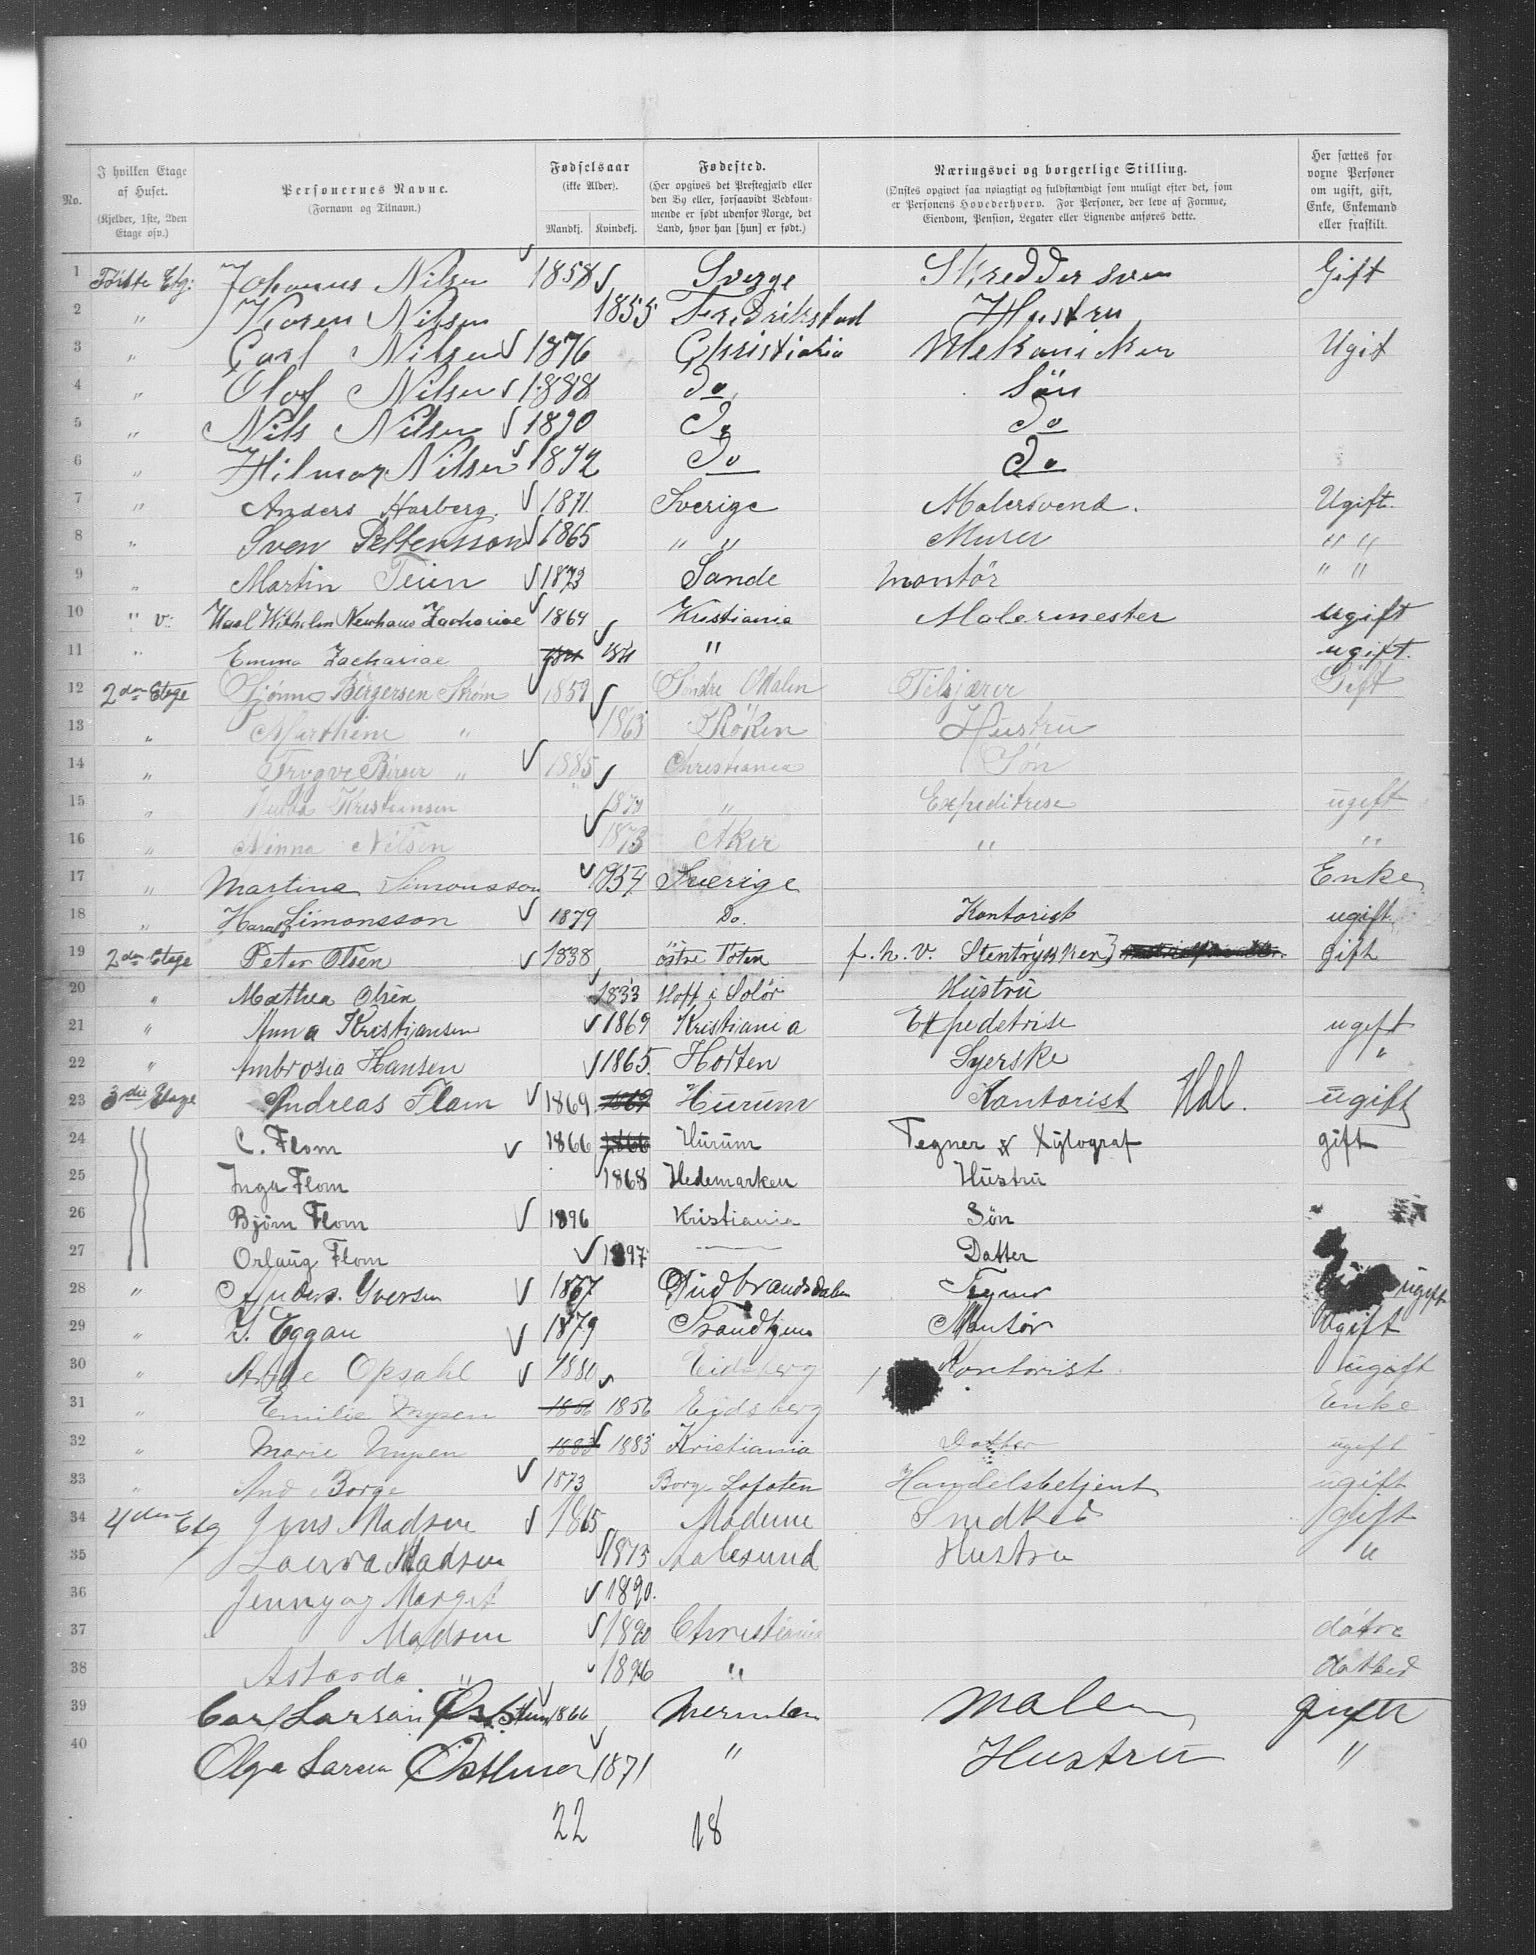 No.
I hvilken Etage af Huset. (Kjelder, 1ste, 2den Etage osv.)
Personernes Navne. (Fornavn og Tilnavn.)
Fødselsaar (ikke Alder). Mandkj. Kvindekj.
Fødested. (Her opgives det Præstegjæld eller den By eller, forsaavidt Vedkommende er født udenfor Norge, det Land, hvor han [hun] er født.)
Næringsvei og borgerlige Stilling. (Ønskes opgivet saa nøiagtigt og fuldstændigt som muligt efter det, som er Personens Hovederhverv. For Personer, der leve af Formue, Eiendom, Pension, Legater eller Lignende anføres dette.)
Her sættes for voxne Personer om ugift, gift, Enke, Enkemand eller fraskilt.
1 Første Etg: Johannes Nilsen 1858 Sverge Skreddersven Gift
2 " Karen Nilsen 1855 Fredrikstad Hustru
3 " Carl Nilsen 1876 Christiania Mekaniker Ugit
4 " Olof Nilsen 1888 Do Sön
5 " Nils Nilsen 1890 Do Do
6 " Hilmar Nilsen 1892 Do Do
7 " Anders Harberg. 1871. Sverige Malersvend. Ugift.
8 " Sven Pettersson 1865 " " Murer " "
9 " Martin Teien 1873 Sande montör " "
10 " v: Karl Wilhelm Newhaus Zachariae 1864 Kristiania Malermester ugift
11 " Emma Zachariae 1871 " ugift.
12 2den Etage Børgersen Strøm 1859 Søndre Gift
13 " " 1863 Røken Hustru
14 " Trygve " 1885 Christiania Søn
15 " Kristiansen " Expeditrise ugift
16 " Minna Nilsen 1873 Aker " "
17 " Martina Simonsson 1854 Sverige Enke
18 " Harald Simonsson 1879 Do. Kontorist ugift
19 2den Etage Peter Olsen 1838 östre Toten f. h. v. Stentrykker gift
20 " Mathea Olsen 1833 Hoff i Solör Hustru
21 " Anna Kristiansen 1869 Kristiania Expedetrise ugift
22 " Ambrosia Hansen 1865. Horten Syerske "
23 3die Etage Andreas Flom 1869 1869 Hurum Kontorist Hdl. ugift
24 C. Flom 1866 1866 Hurum Tegner & Xylograf gift
25 Inga Flom 1868 Hedemarken Hustru
26 Bjørn Flom 1896 Kristiania Søn
27 Orlaug Flom 1897 — Datter
28 " Anders. Yversen 1867 Gudbrandsdalen Tegner ugift
29 " Eggan 1879 Trondhjem Montør Ugift
30 " Opsahl 1880 Eidsberg Kontorist ugift
31 " Emilie Mysen 1856 1856 Eidsberg Enke
32 " Marie Mysen 1883 1883 Kristiania Datter ugift
33 " And. Borge 1873 Borge Lofoten Handelsbetjent ugift
34 4den Etg Jens Madsen 1865 Modum Snedker gift
35 Madsen 1873 Aalesund Hustru "
36 Jenny og Margit 1890.
37 Madsen 1890 Christiania døtre
38 " 1896 "
39 Carl Larsen 1866 Maler gift
40 Olga Larsen 1871 " Hustru "
22 18